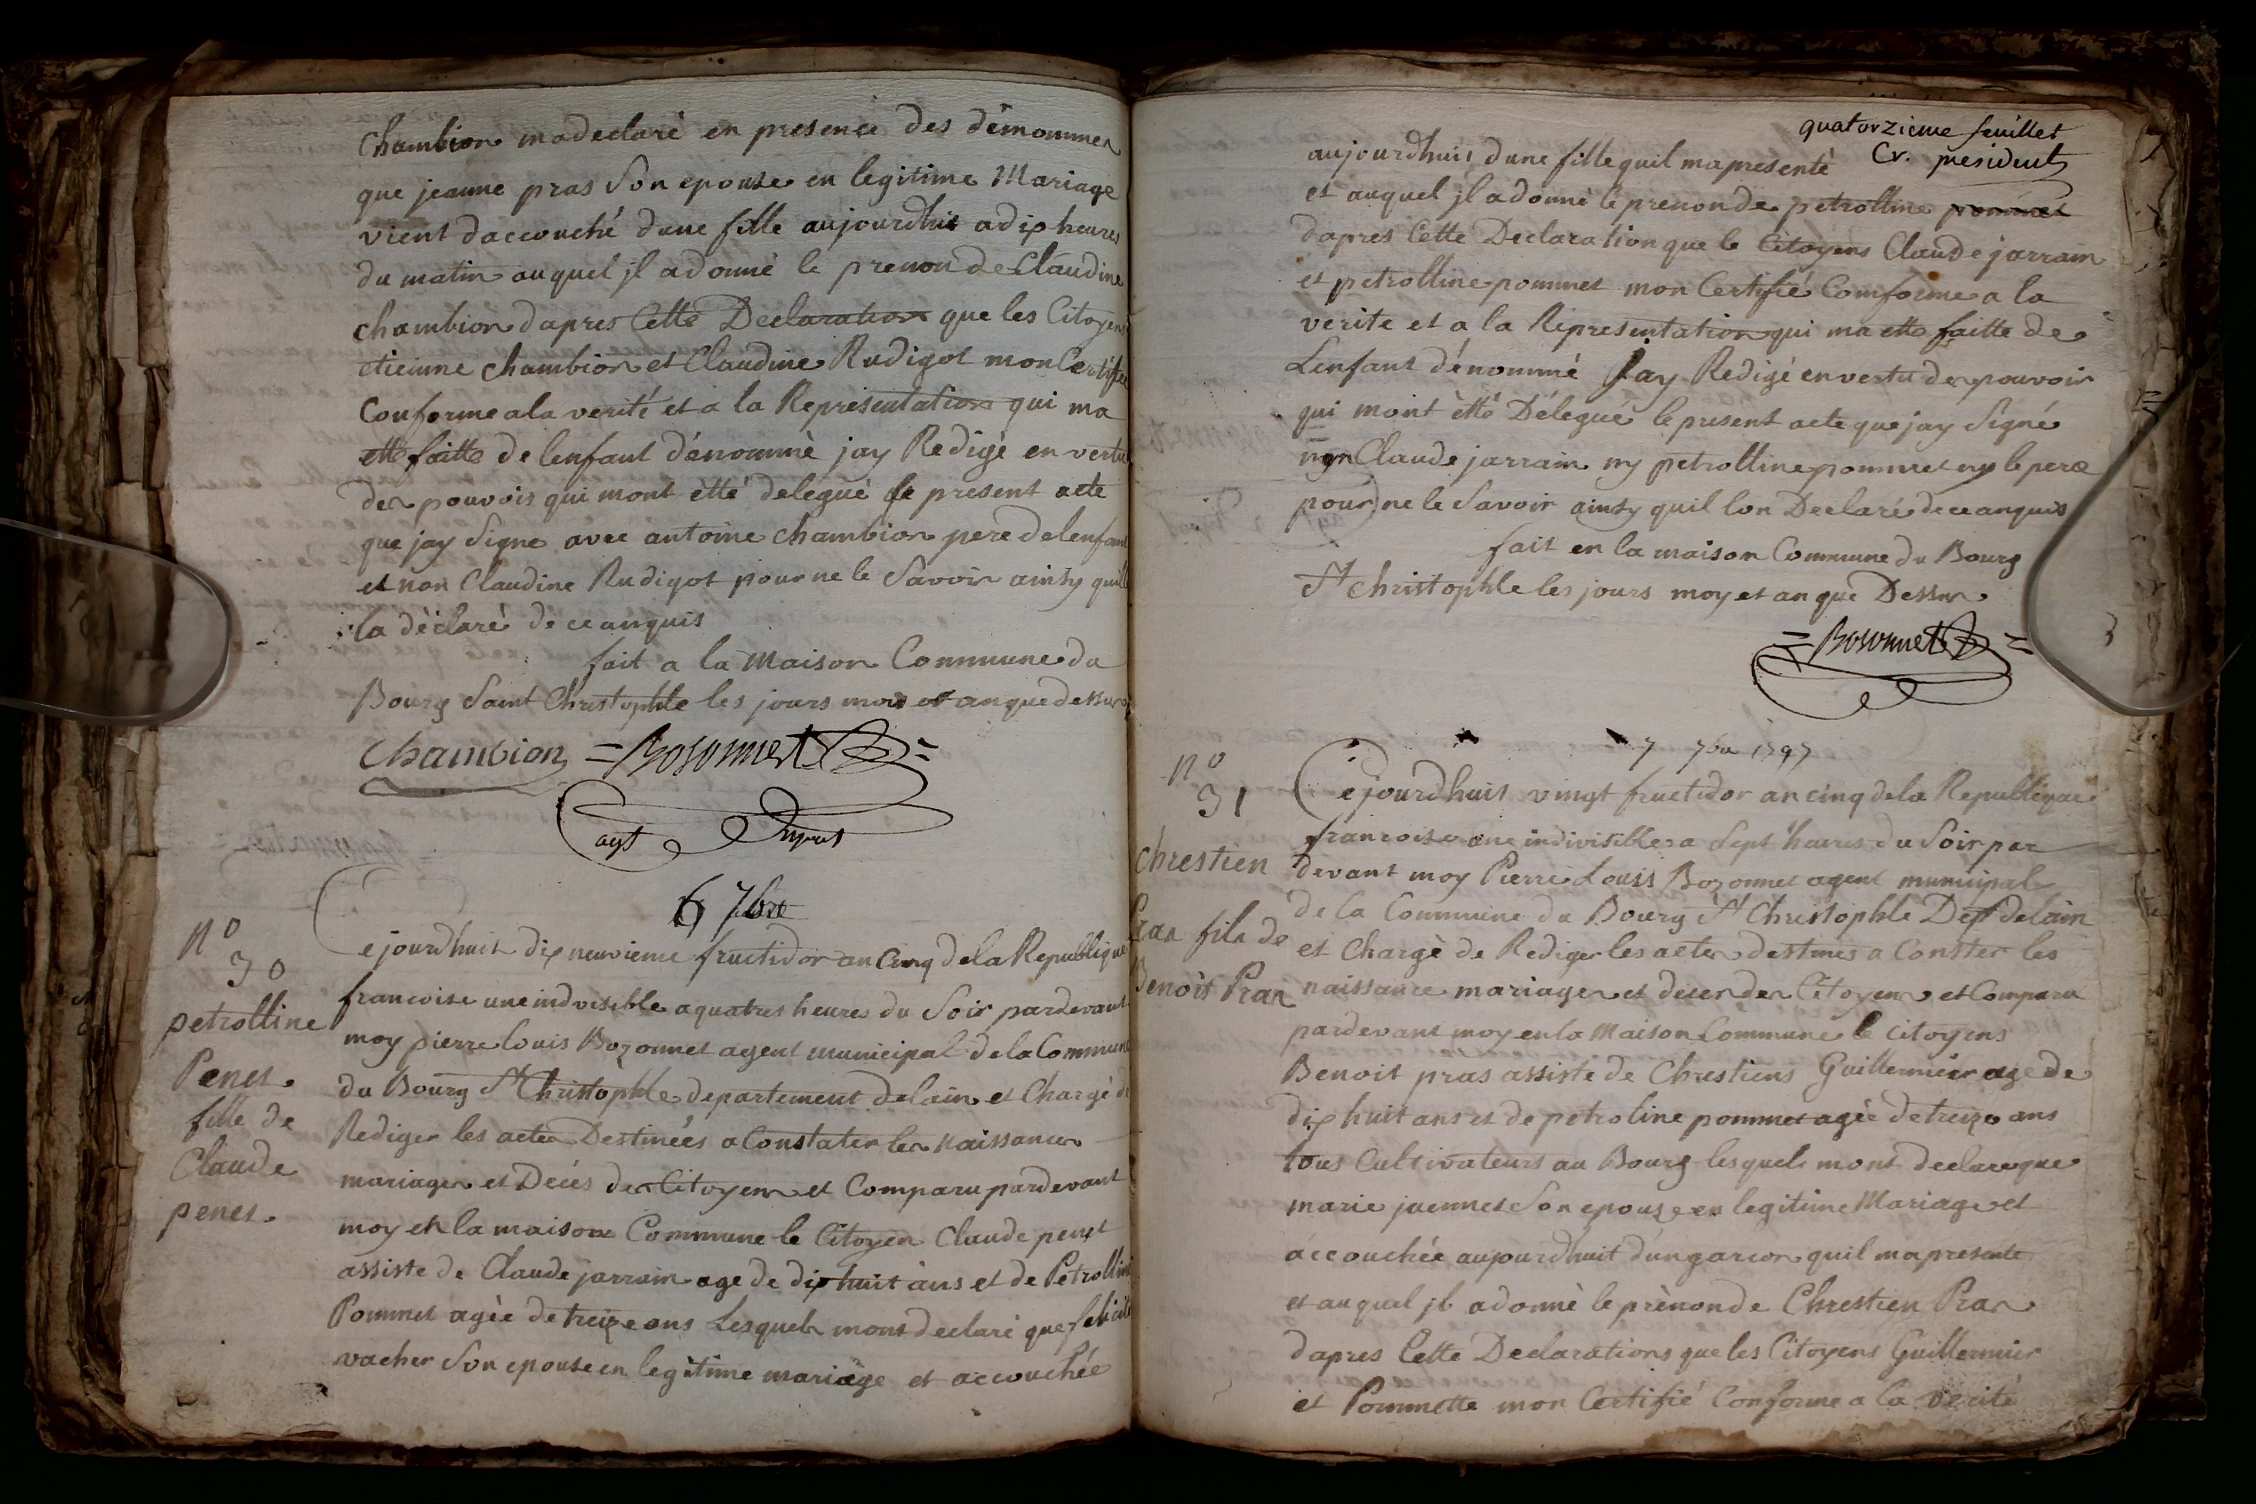 chambion madeclaré en presence des dénommes
que jeanne pras Son epouse en legitime Mariage
vient daccouché dune fille aujourdhui a dix heures
du matin auquel jl adonné le prenon de Claudine
chambion dapres Cette Declaration que les Citoyens
etienne chambion et Claudine Rudigot mon Certifié
Conforme ala verité et a la Representation qui ma
etté faitte de lenfant dénommé jay Redigé en vertu
des pouvois qui mont étté delegué le present acte
que jay Signe avec antoine chambion pere delenfant
et non Claudine Rudigot pour ne le Savoir ainsy quill
la déclaré de ce anquis
fait a la Maison Commune du
Bourg Saint Christophle les jours mois et an que dessus
Chambion = Bosonnet =
agt
6 7bre
n° 30
petrolline
Penet
fille de
Claude
penet.
Cejourdhuit dix neuvieme fructidor an Cinq dela Republique
francoise une indvisible a quatres heures du Soir pardevant
moy pierre louis Bozonnet agent municipal de la Commune
du Bourg St Christophle departement delain et Chargé de
Rediger les actes Destinées a Constater les Naissances
mariages et Décés des Citoyens et Comparu pardevant
moy en la maison Commune le Citoyen Claude penet
assiste de Claude jarrain age de dix huit ans et de Petrolline
Pommet agée de treize ans Lesquels mont declaré que felicité
vacher Son epouse en legitime mariage et accouchée
quatorzieme feuillet
Cr. president
aujourdhuis dune fille quil mapresenté
et auquel jl adonné le prenon de petrolline pommet
dapres Cette Declaration que le Citoyens Claude jarrain
et petrolline pommet mon Certifié Comforme a la
verite et a la Representation qui ma etté faitte de
Lenfant dénommé Jay Redigé en vertu des pouvoir
qui mont étté Délegué le present acte que jay Signé
non Claude jarrain ny petrolline pommet ny le pere
pour ne le Savoir ainsy quil lon Declaré de ce anquis
fait en la maison Commune du Bourg
St christophle les jours moy et an que Dessus
= Bosonnet =
7 7bre 1797
n° 31
chrestien
Pras fils de
Benoit Pras
Cejourdhuit vingt fructidor an cinq dela Republique
francoise une indivisible a Sept heures du Soir par
devant moy Pierre Louis Bozonnet agent municipal
de la Commune du Bourg St Christophle Dept delain
et Chargé de Rediger les actes destines a Conster les
naissance mariages et deces des Citoyens et Comparu
pardevant moy en la Maison Commune le Citoyens
Benoit pras assiste de Chrestiens Guillermier age de
dix huit ans et de petroline pommet agée de treize ans
tous Cultivateurs au Bourg lesquels mont declare que
marie jaennet Son epouse en legitime Mariage et
accouchée aujourdhuit dun garcon quil mapresente
et auquel jl adonné le prènon de Chrestien Pras
dapres Cette Declarations que les Citoyens Guillermier
et Pommette mon Certifié Conforme a la verité